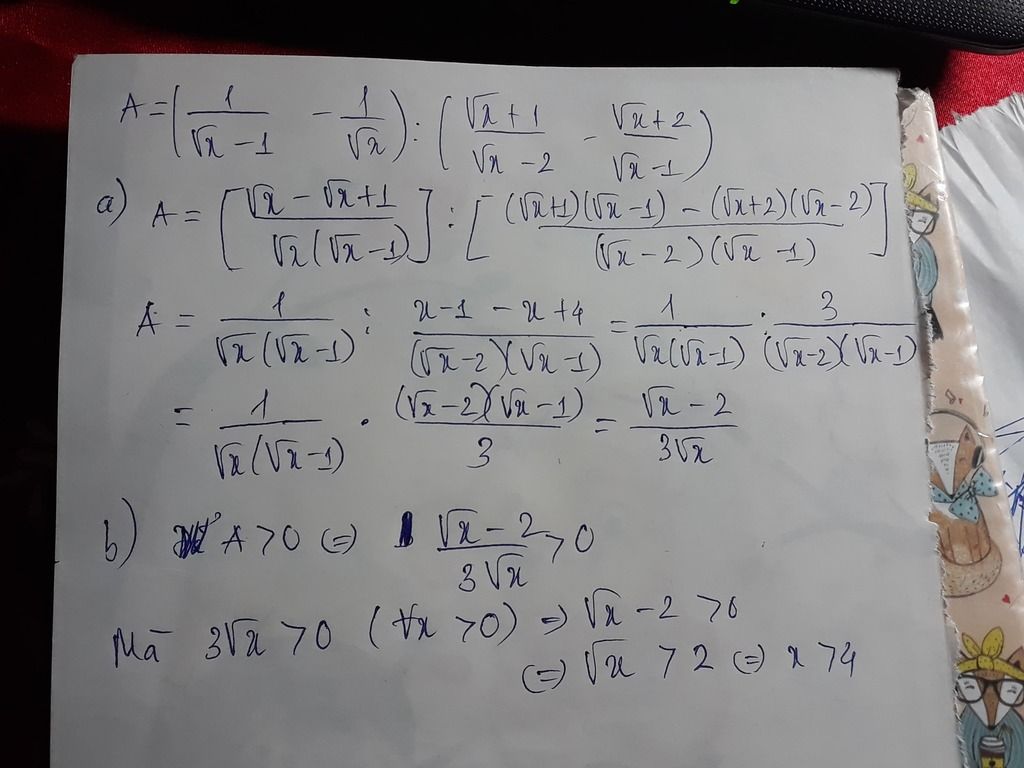 A = (1/(√x - 1) - 1/√x) : ((√x + 1)/(√x - 2) - (√x + 2)/(√x - 1))
a) A = [(√x - √x + 1)/(√x(√x - 1))] : [((√x+1)(√x - 1) - (√x+2)(√x - 2))/((√x - 2)(√x - 1))]
A = 1/(√x(√x - 1)) : (x - 1 - x + 4)/((√x - 2)(√x - 1)) = 1/(√x(√x - 1)) · 3/((√x - 2)(√x - 1))
= 1/(√x(√x - 1)) · ((√x - 2)(√x - 1))/3 = (√x - 2)/(3√x)
b) A > 0 (=) (√x - 2)/(3√x) > 0
Mà 3√x > 0 (∀x > 0) => √x - 2 > 0
(=) √x > 2 (=) x > 4